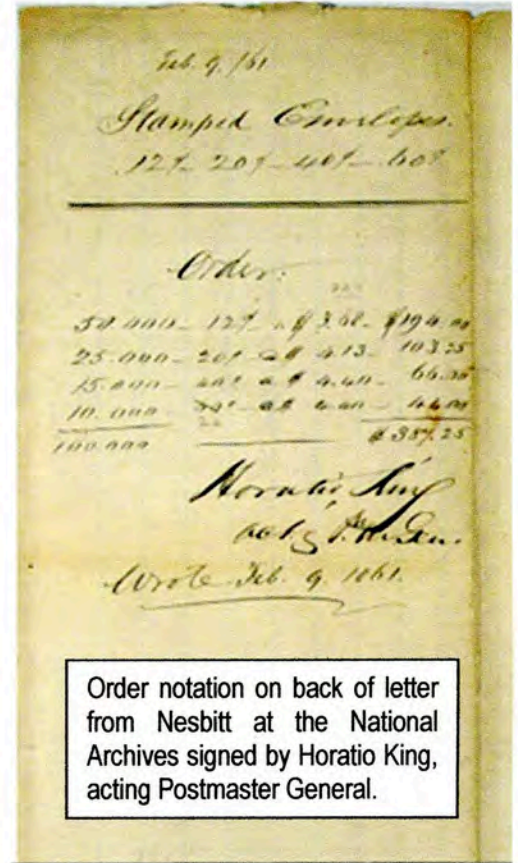 Feb. 9, /61
Stamped Envelopes.
12¢ - 20¢ - 40¢ -
Order:
50.000 - 12¢ - @ $ - $194.00
25.000 - 20¢ @ $ 4.13 - 103.25
15.000 - 40¢ @ $ 4.40 - 66.00
10.000 @ $ 4.40 - 44.00
100.000 $
Horatio King
Wrote Feb. 9. 1861.
Order notation on back of letter
from Nesbitt at the National
Archives signed by Horatio King,
acting Postmaster General.